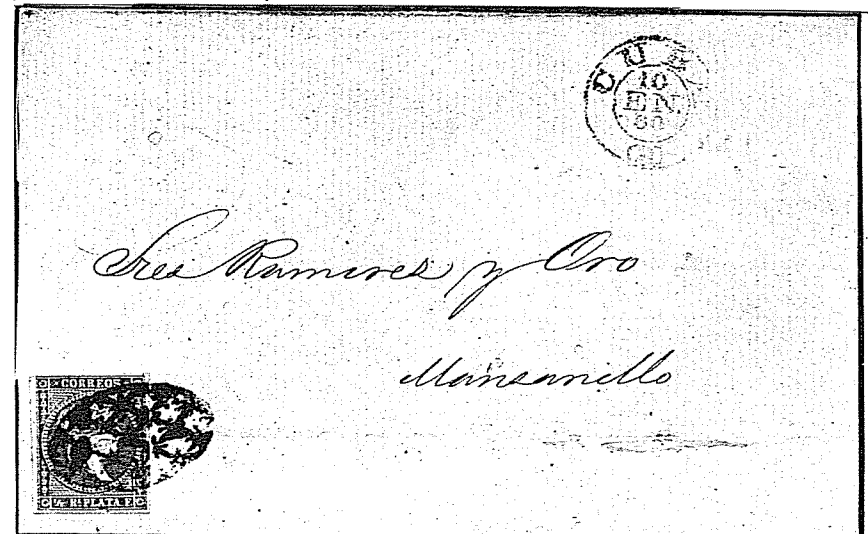 CUBA
10
EN
60
Sres Ramires y Oro
Mansanillo
CORREOS
½ Rl PLATA F